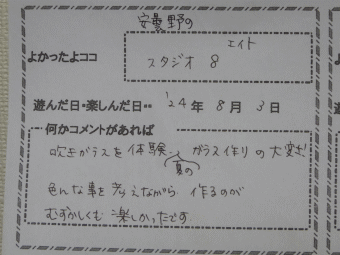 安曇野の
エイト
よかったよココ
スタジオ 8
遊んだ日・楽しんだ日・・ '24年 8月 3日
何かコメントがあれば
吹きガラスを体験、ガラス作りの大変さ
夏の
色んな事を考えながら 作るのが
むずかしくも 楽しかったです